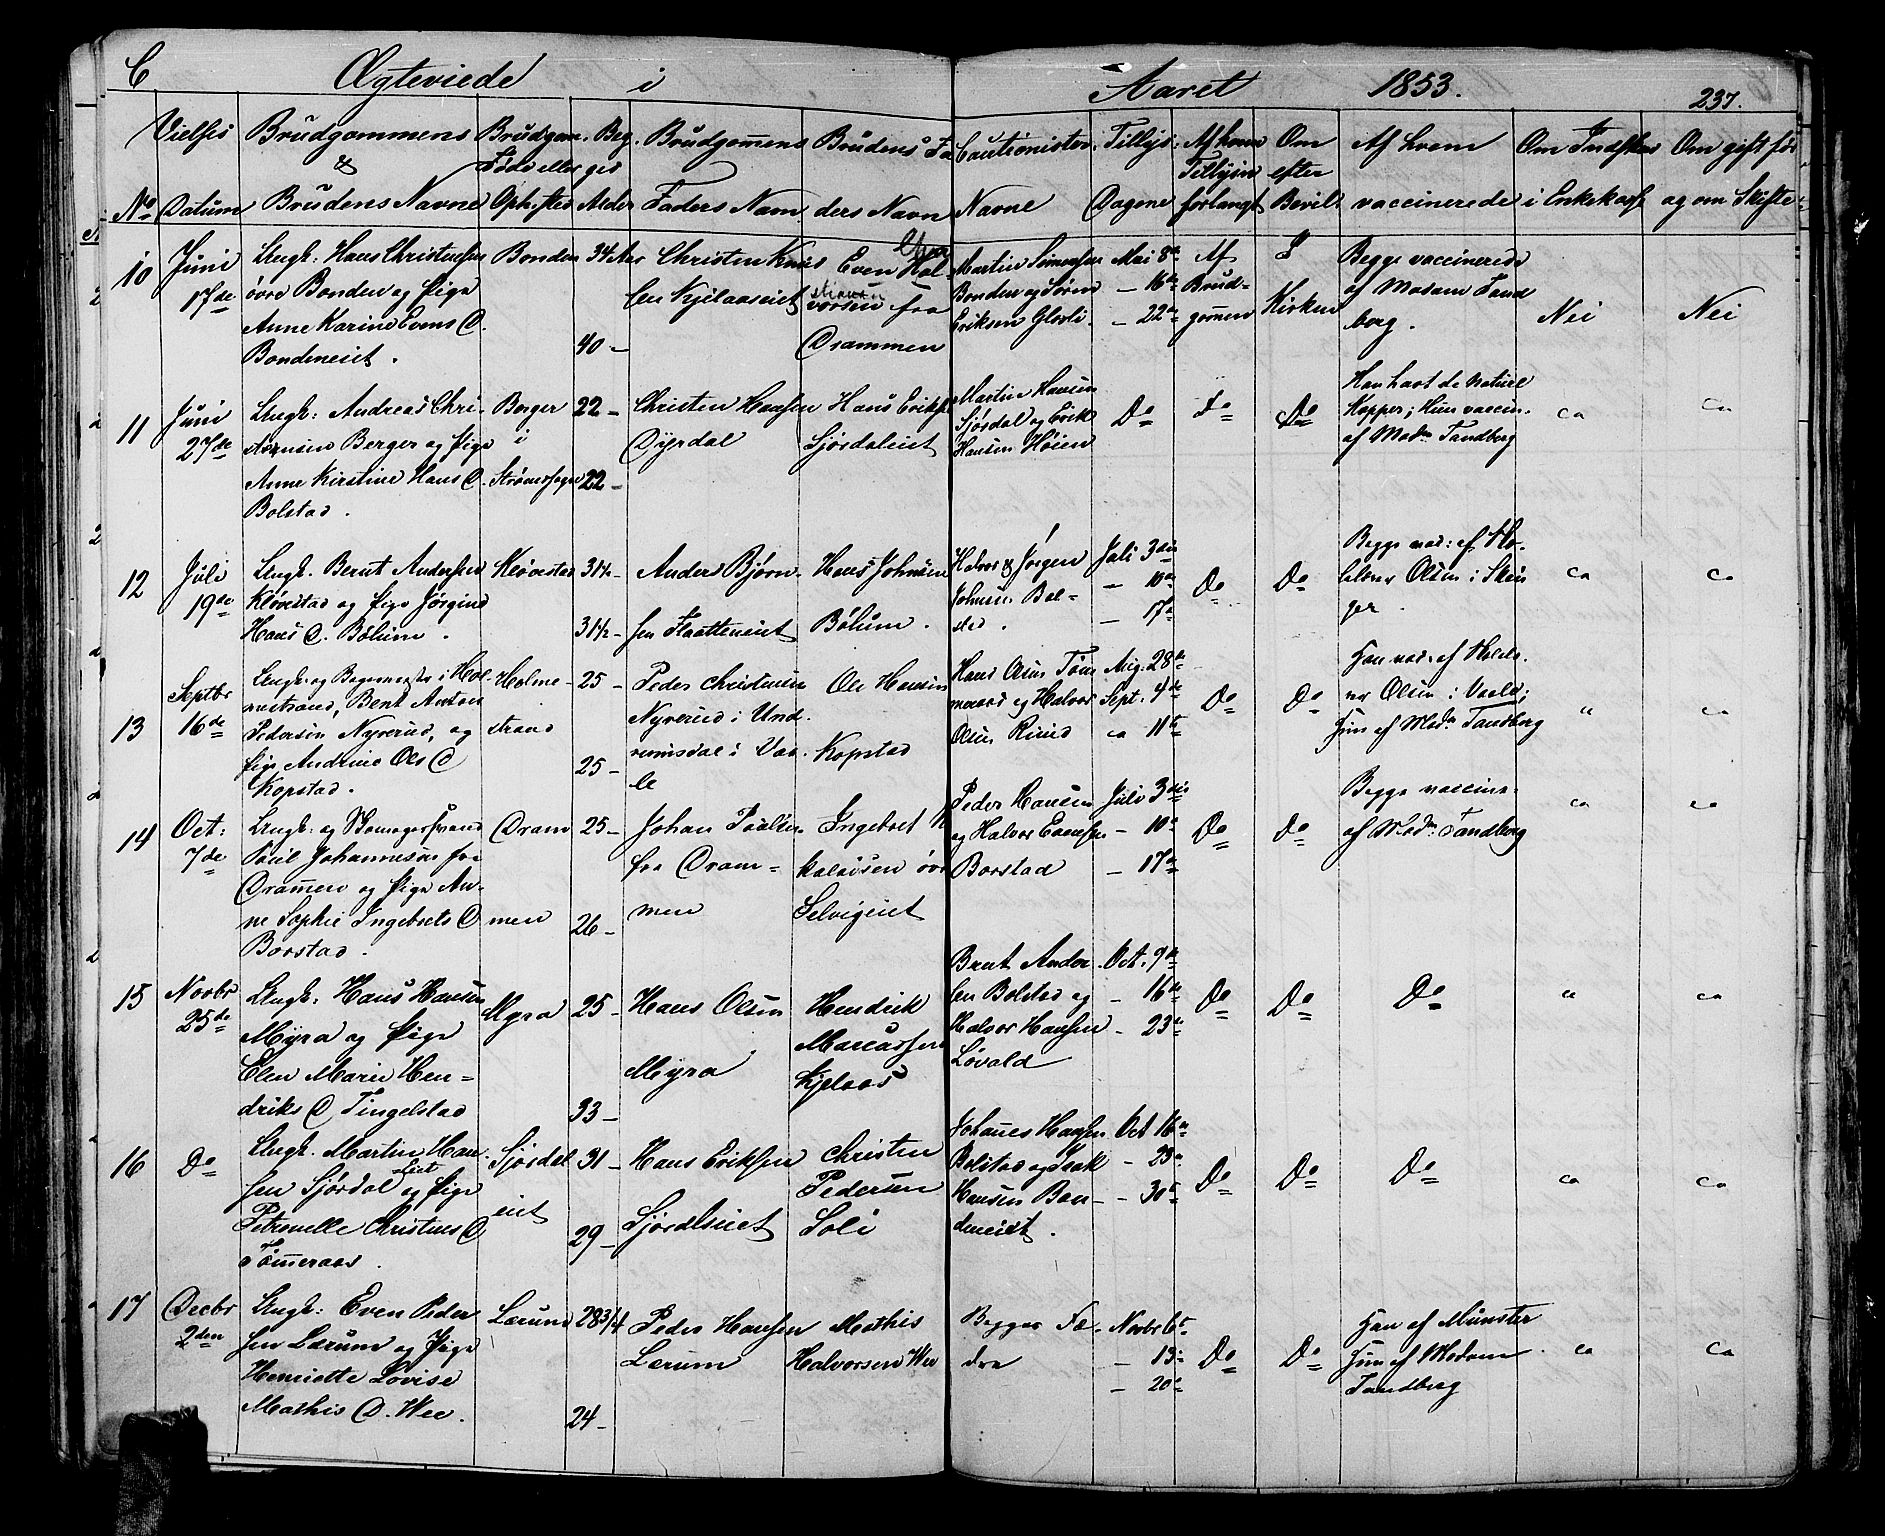 C Ægteviede i Aaret 1853. 237.
Vielses Brudgommens Brudgom. Beg. Brudgomens Brudens Fa Cautionister Tillys: Af hvem Om Af hvem Om Indskud Om gift før
& Føde eller ges Tillysn efter
No Datum Brudens Navne Opholssted Alder Faders Navn ders Navn Navne Dagene forlangt Bevil: vaccinerede i Enkekasse og om Skifte
10 Juni 17de
Ungk: Hans Christensen
øvre Bonden og Pige
Anne Karine Evens D.
Bondeneiet.
Bonden
34 Aar
40 –
Christen Knud
sen Kjelaaseiet
Even Hal
vorsen fra
Drammen
Martin Simensen
Bonden og Søren
Eriksen Glosli.
Mai 8de
– 16de
– 22de
Af
Brud=
gomen
I
Kirken
Begge vaccinerede
af Madam Tand
berg.
Nei
Nei
11 Juni 27de
Ungk: Andreas Chri-
stensen Berger og Pige
Anne Kirstine Hans D.
Bolstad.
Berger
i
Strømssogn
22 –
22 –
Christen Hansen
Dyrdal
Hans Eriksen
Sjørdaleiet
Martin Hansen
Sjørdal og Erik
Hansen Høien
Do
Do
Do
Han havt de naturl
Kopper; Hun vaccin.
af Madm Tandberg
12 Juli 19de
Ungk. Bernt Andersen
Kløvestad og Pige Jørgine
Hans D. Bølum.
Kløvestad
31½ –
31½ –
Anders Bjørn.
sen Flaatteneiet
Hans Johnsen
Bølum.
Halvor & Jørgen
Johnsen Bol=
stad.
Juli 3die
– 10de
– 17de
Do
Do
Begge vac: af Ho.
Olsen i Skou
ger.
13 Septbr 16de
Ungk. og Bagermester i Hol
mestrand, Bent Anton
Pedersen Nyerud, og
Pige Andrine Ols D
Kopstad.
Holme-
strand
25 –
25 –
Peder Christensen
Nyerud i Und.
rumsdal i Vaa.
le
Ole Hansen
Kopstad
Hans Olsen Tøm
meraas og Halvor
Olsen Riiis
Aug. 28de
Sept. 4de
11te
Do
Do
Han vac: af Holde.
Olsen i Vaale;
Hun af Madm Tandberg
14 Oct: 7de
Ungk: og
Poul Johannesen fra
Dramen og Pige An-
ne Sophie Ingebrets D
Borstad.
Dram
men
25 –
26 –
Johan Poulsen
fra Dram=
men
Ingebret
kolaisen øvr
Selvigeiet
Peder Hansen
og Halvor Evensen
Borstad
Juli 3die
– 10de
– 17de
Do
Do
Begge vaccine.
af Madm: Tandberg
15 Novbr 25de
Ungk: Hans Hansen
Myra og Pige
Elen Marie Hen=
driks D Tingelstad
Myra
25 –
33 –
Hans Olsen
Myra
Hendrik
Marcussen
Kjelaas
Brent Ander
sen Bolstad og
Halvor Hansen
Løvald
Oct. 9de
– 16de
– 23de
Do
Do
Do
16 Do
Ungk. Martin Han
sen Sjørdaleiet og Pige
Petronelle Christens D
Tømeraas.
Sjørdal
eiet
31 –
29 –
Hans Eriksen
Sjordleiet
Christen
Pedersen
Soli
Johanes Hansen
Bolstad og Isak
Hansen Bon-
deneidt.
Oct 16de
– 23de
– 30te
Do
Do
Do
17 Decbr 2den
Ungk: Even Peder
sen Lærum og Pige
Henriette Lovise
Mathis D. Wee.
Lærum
28 3/4
24 –
Peder Hansen
Lærum
Mathis
Halvorsen Wee
Begges Fæ
dre
Novbr 6te
– 13de
– 20de
Do
Do
Han af Münster
Hun af Madam
Tandberg